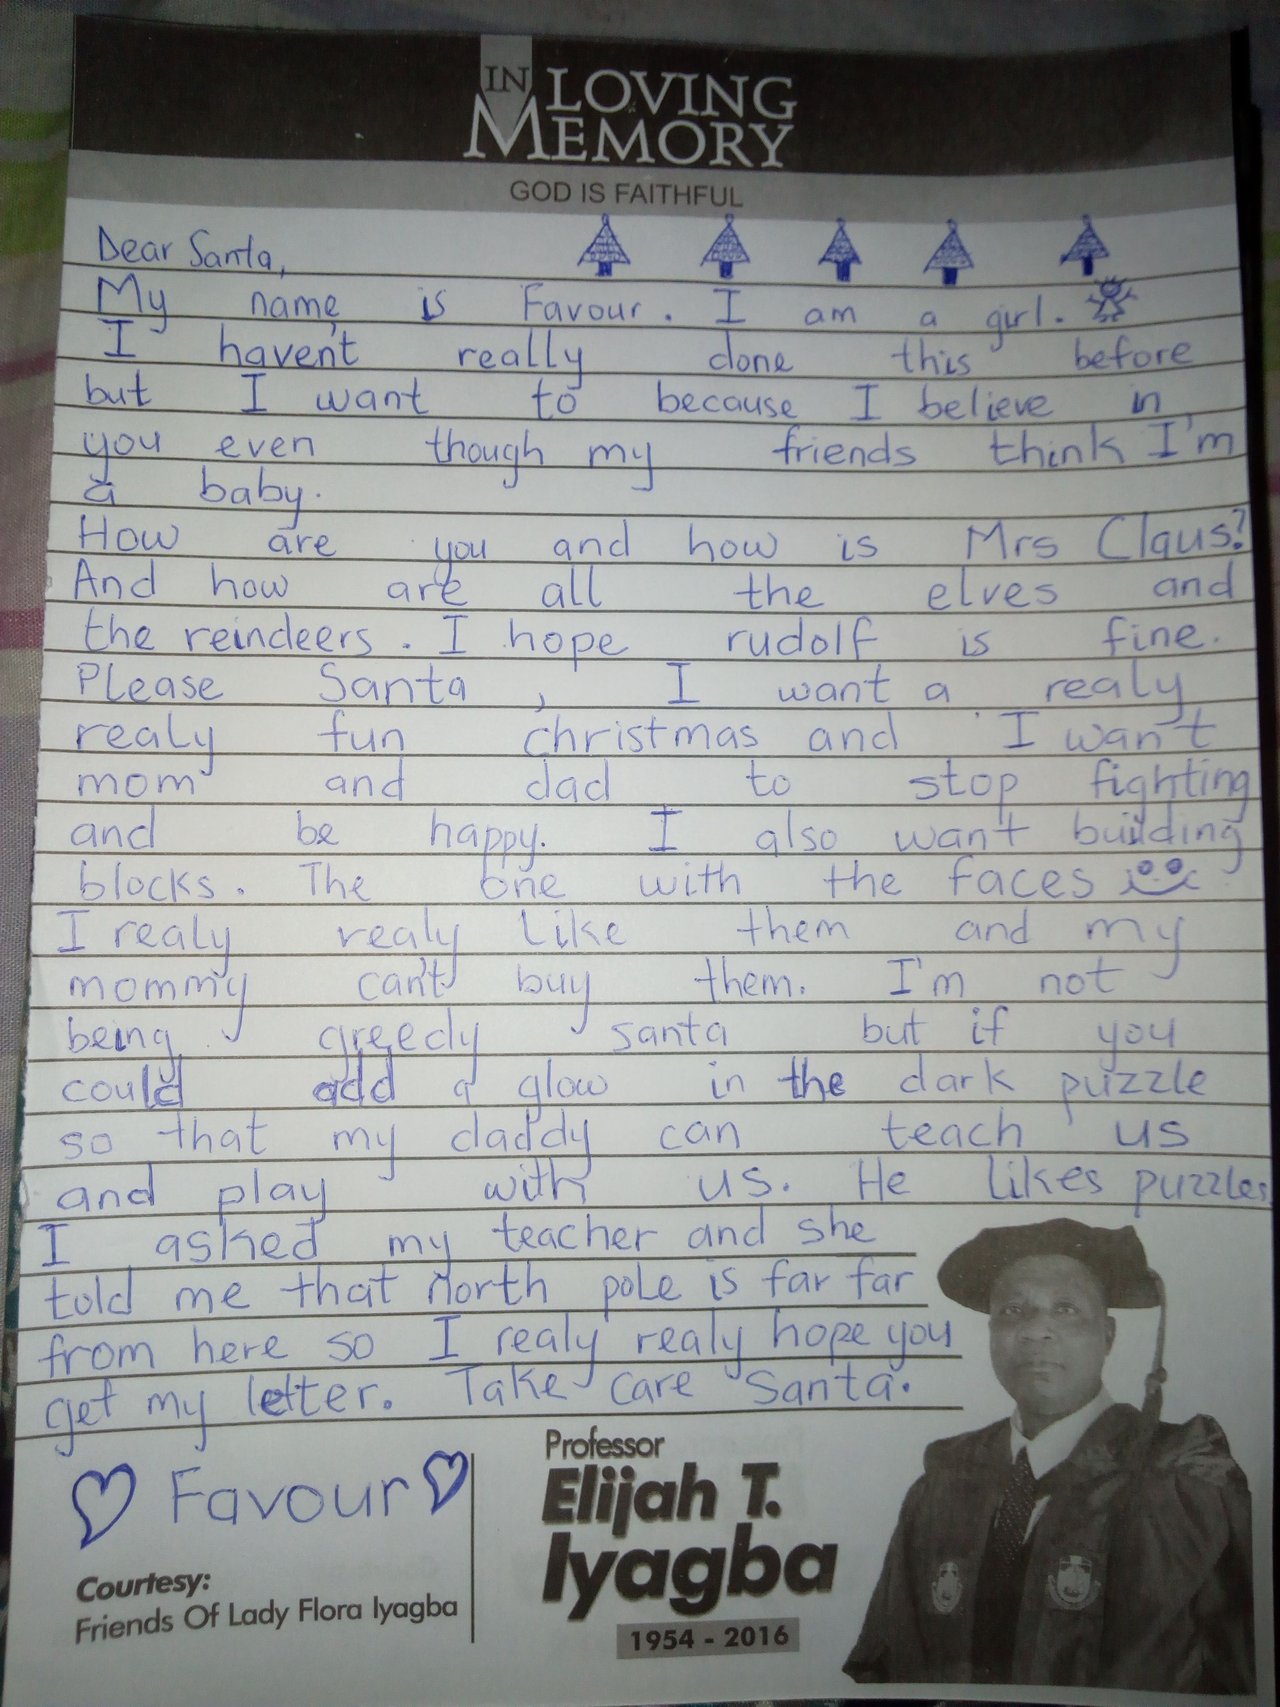 IN LOVING
MEMORY
GOD IS FAITHFUL
Dear Santa,
My name is Favour. I am a girl.
I haven't really done this before
but I want to because I believe in
you even though my friends think I'm
a baby.
How are you and how is Mrs Claus?
And how are all the elves and
the reindeers. I hope rudolf is fine.
Please Santa, I want a realy
realy fun christmas and I want
mom and dad to stop fighting
and be happy. I also want building
blocks. The one with the faces
I realy realy like them and my
mommy can't buy them. I'm not
being greedy santa but if you
could add a glow in the dark puzzle
so that my daddy can teach us
and play with us. He likes puzzles
I asked my teacher and she
told me that north pole is far far
from here so I realy realy hope you
get my letter. Take care Santa.
Favour
Courtesy:
Friends Of Lady Flora Iyagba
Professor
Elijah T.
Iyagba
1954 - 2016